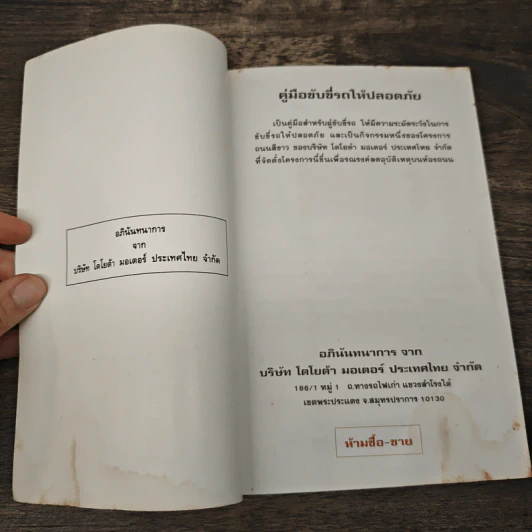 อภินันทนาการ
จาก
บริษัท โตโยต้า มอเตอร์ ประเทศไทย จำกัด
คู่มือขับขี่รถให้ปลอดภัย
เป็นคู่มือสำหรับผู้ขับขี่รถ ให้มีความระมัดระวังในการ
ขับขี่รถให้ปลอดภัย และเป็นกิจกรรมหนึ่งของโครงการ
ถนนสีขาว ของบริษัท โตโยต้า มอเตอร์ ประเทศไทย จำกัด
ที่จัดตั้งโครงการนี้ขึ้นเพื่อรณรงค์ลดอุบัติเหตุบนท้องถนน
อภินันทนาการ จาก
บริษัท โตโยต้า มอเตอร์ ประเทศไทย จำกัด
186/1 หมู่ 1 ถ.ทางรถไฟเก่า แขวงสำโรงใต้
เขตพระประแดง จ.สมุทรปราการ 10130
ห้ามซื้อ-ขาย